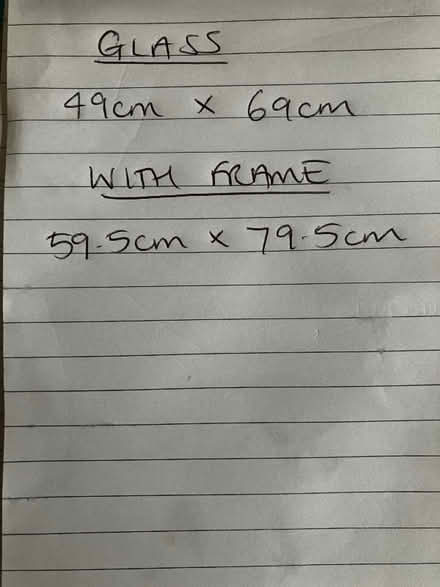 GLASS
49cm x 69cm
WITH FRAME
59.5cm x 79.5cm